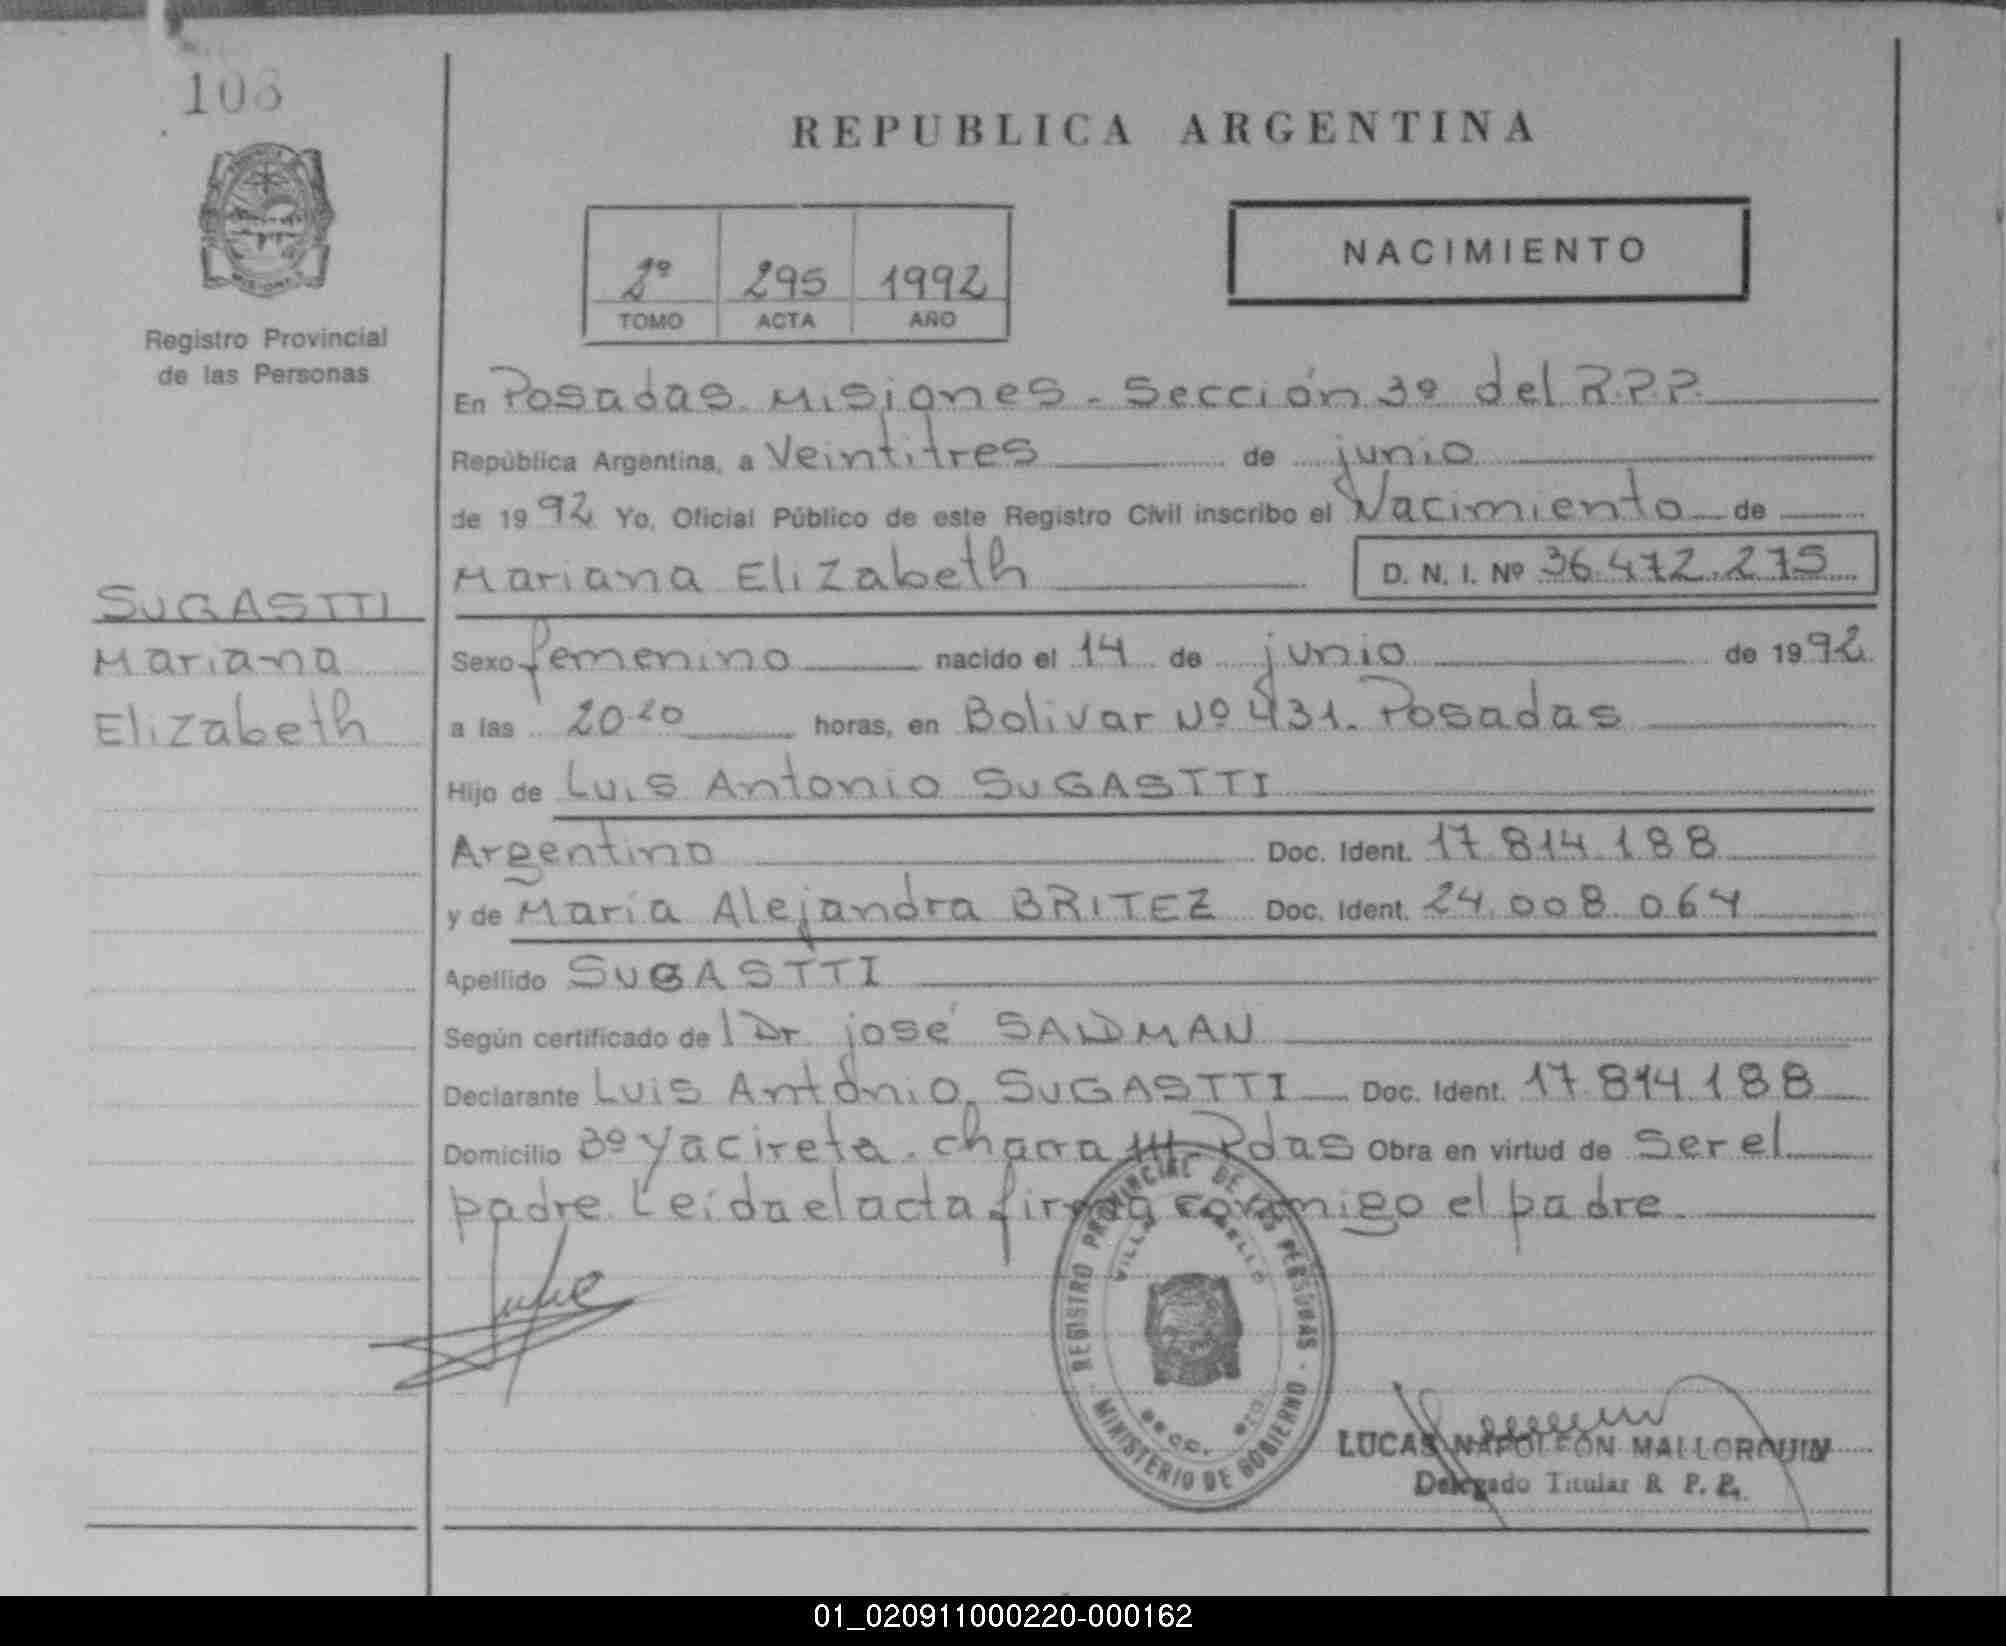 108
REPUBLICA ARGENTINA
NACIMIENTO
2º 295 1992
TOMO ACTA AÑO
Registro Provincial
de las Personas
En Posadas. Misiones. Sección 3º del R.P.P.
República Argentina, a Veintitres de junio
de 1992 Yo, Oficial Público de este Registro Civil inscribo el Nacimiento de
Mariana Elizabeth D. N. I. Nº 36.472.275
SUGASTTI
Mariana
Elizabeth
Sexo femenino nacido el 14 de junio de 1992
a las 20.20 horas, en Bolivar Nº 431. Posadas
Hijo de Luis Antonio SUGASTTI
Argentino Doc. Ident. 17.814.188
y de María Alejandra BRITEZ Doc. Ident. 24.008.064
Apellido SUGASTTI
Según certificado de l Dr. josé SALDMAN
Declarante Luis Antonio SUGASTTI Doc. Ident. 17.814.188
Domicilio Bº Yacireta. chacra Pdas Obra en virtud de Ser el
padre. Leída el acta firma conmigo el padre.
REGISTRO PROVINCIAL DE LAS PERSONAS
MINISTERIO DE GOBIERNO
VILLA
SECC.
LUCAS NAPOLEON MALLORQUIN
Delegado Titular R. P. P.
01_020911000220-000162